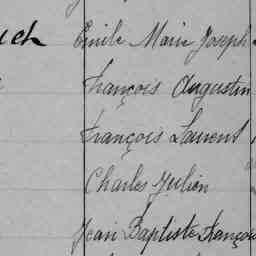 Emile Marie Joseph
François Augustin
François Laurent
Charles Julien
Jean Baptiste François